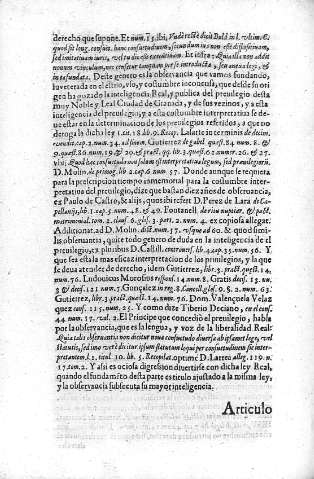 derecho que supone. Et num. 15. ibi, Vnde rectè dicit Bald. in l. vltim. C.
quod sit long. consuet. hanc consuetudinem, secundum ius non esse distensiuam,
sed imitatiuam iuris, vel tu dic esse extensiuam. Et infra: Qualis non addit
nouum vinculum, nec censetur tanquam per se introducta, sed annexa legi, &
in ea fundata. Deste genero es la obseruancia que vamos fundando,
inueterada en el trio, vso, y costumbre inconcusa, que desde su origen
ha gozado la inteligencia Real, y publica del preuilegio desta
muy Noble y Leal Ciudad de Granada, y de sus vezinos, y a esta
inteligencia del preuilegio, y a esta costumbre interpretatiua se deue
estar en la determinacion de los preuilegios referidos, a que no
deroga la dicha ley 1. tit. 18. lib. 9. Recop. Lasarte in terminis de decim.
vendit. cap. 2. num. 24. ad finem. Gutierrez de gabel. quæst. 84. num. 8. &
9. quæst. 86. num. 19. & 20. & pract. qq. lib. 3. quæst. 2. à numer. 26. & 27.
vbi: Quod hæc consuetudo non solum est interpretatiua legum, sed preuilegiorũ.
D. Molin. de primog. lib. 2. cap. 6. num. 57. Donde aunque se requiera
para la prescripcion tiempo inmemorial para la costumbre interpretatiua
del preuilegio, dize que bastan diez años de obseruancia,
ex Paulo de Castro, & alijs, quos ibi refert D. Perez de Lara de Capellanijs,
lib. 1. cap. 5. num. 48. & 49. Fontanell. de pac. nuptiar. & pact.
matrimonial. tom. 2. claus. 6. glos. 3. part. 2. num. 4. ex copiosa allegat.
Additionat. ad D. Molin. dict. num. 57. vsque ad 60. & quod similis
obseruantia, quite todo genero de duda en la inteligencia de el
preuilegio, ex pluribus D. Castill. controuers. lib. 4. cap. 35. num. 56. Y
que sea esta la mas eficaz interpretacion de los priuilegios, y la que
se deua atender de derecho, idem Gutierrez, lib. 3. pract. quæst. 14.
num. 76. Ludouicus Morosius respons. 14. num. 8. Gratis decis. 13. nu.
3. & decis. 121. num. 7. Gonçalez in reg. 8. Cancell. glos. 9. §. 2. num. 63.
Gutierrez, lib. 3. pract. quæst. 14. num. 76. Dom. Valençuela Velaz
quez cons. 125. num. 25. Y como dize Tiberio Deciano, en el cons.
44. num. 17. vol. 2. El Principe que concediò el preuilegio, habla
por la obseruancia, que es la lengua, y voz de la liberalidad Real:
Quia talis obseruantia non dicitur noua consuetudo diuersa ab ipsa met lege, vel
statuto, sed imo verè dicitur ipsum statutum legi per consuetudinem sic interpretandam
l. 1. titul. 10. lib. 5. Recopilat. optimè D. Larrea alleg. 119. n.
17. tom. 2. Y assi es ociosa digression diuertirse con dicha ley Real,
quando el fundamento desta parte es titulo ajustado a la misma ley,
y la obseruancia subsecuta su mayor inteligencia.
Articulo